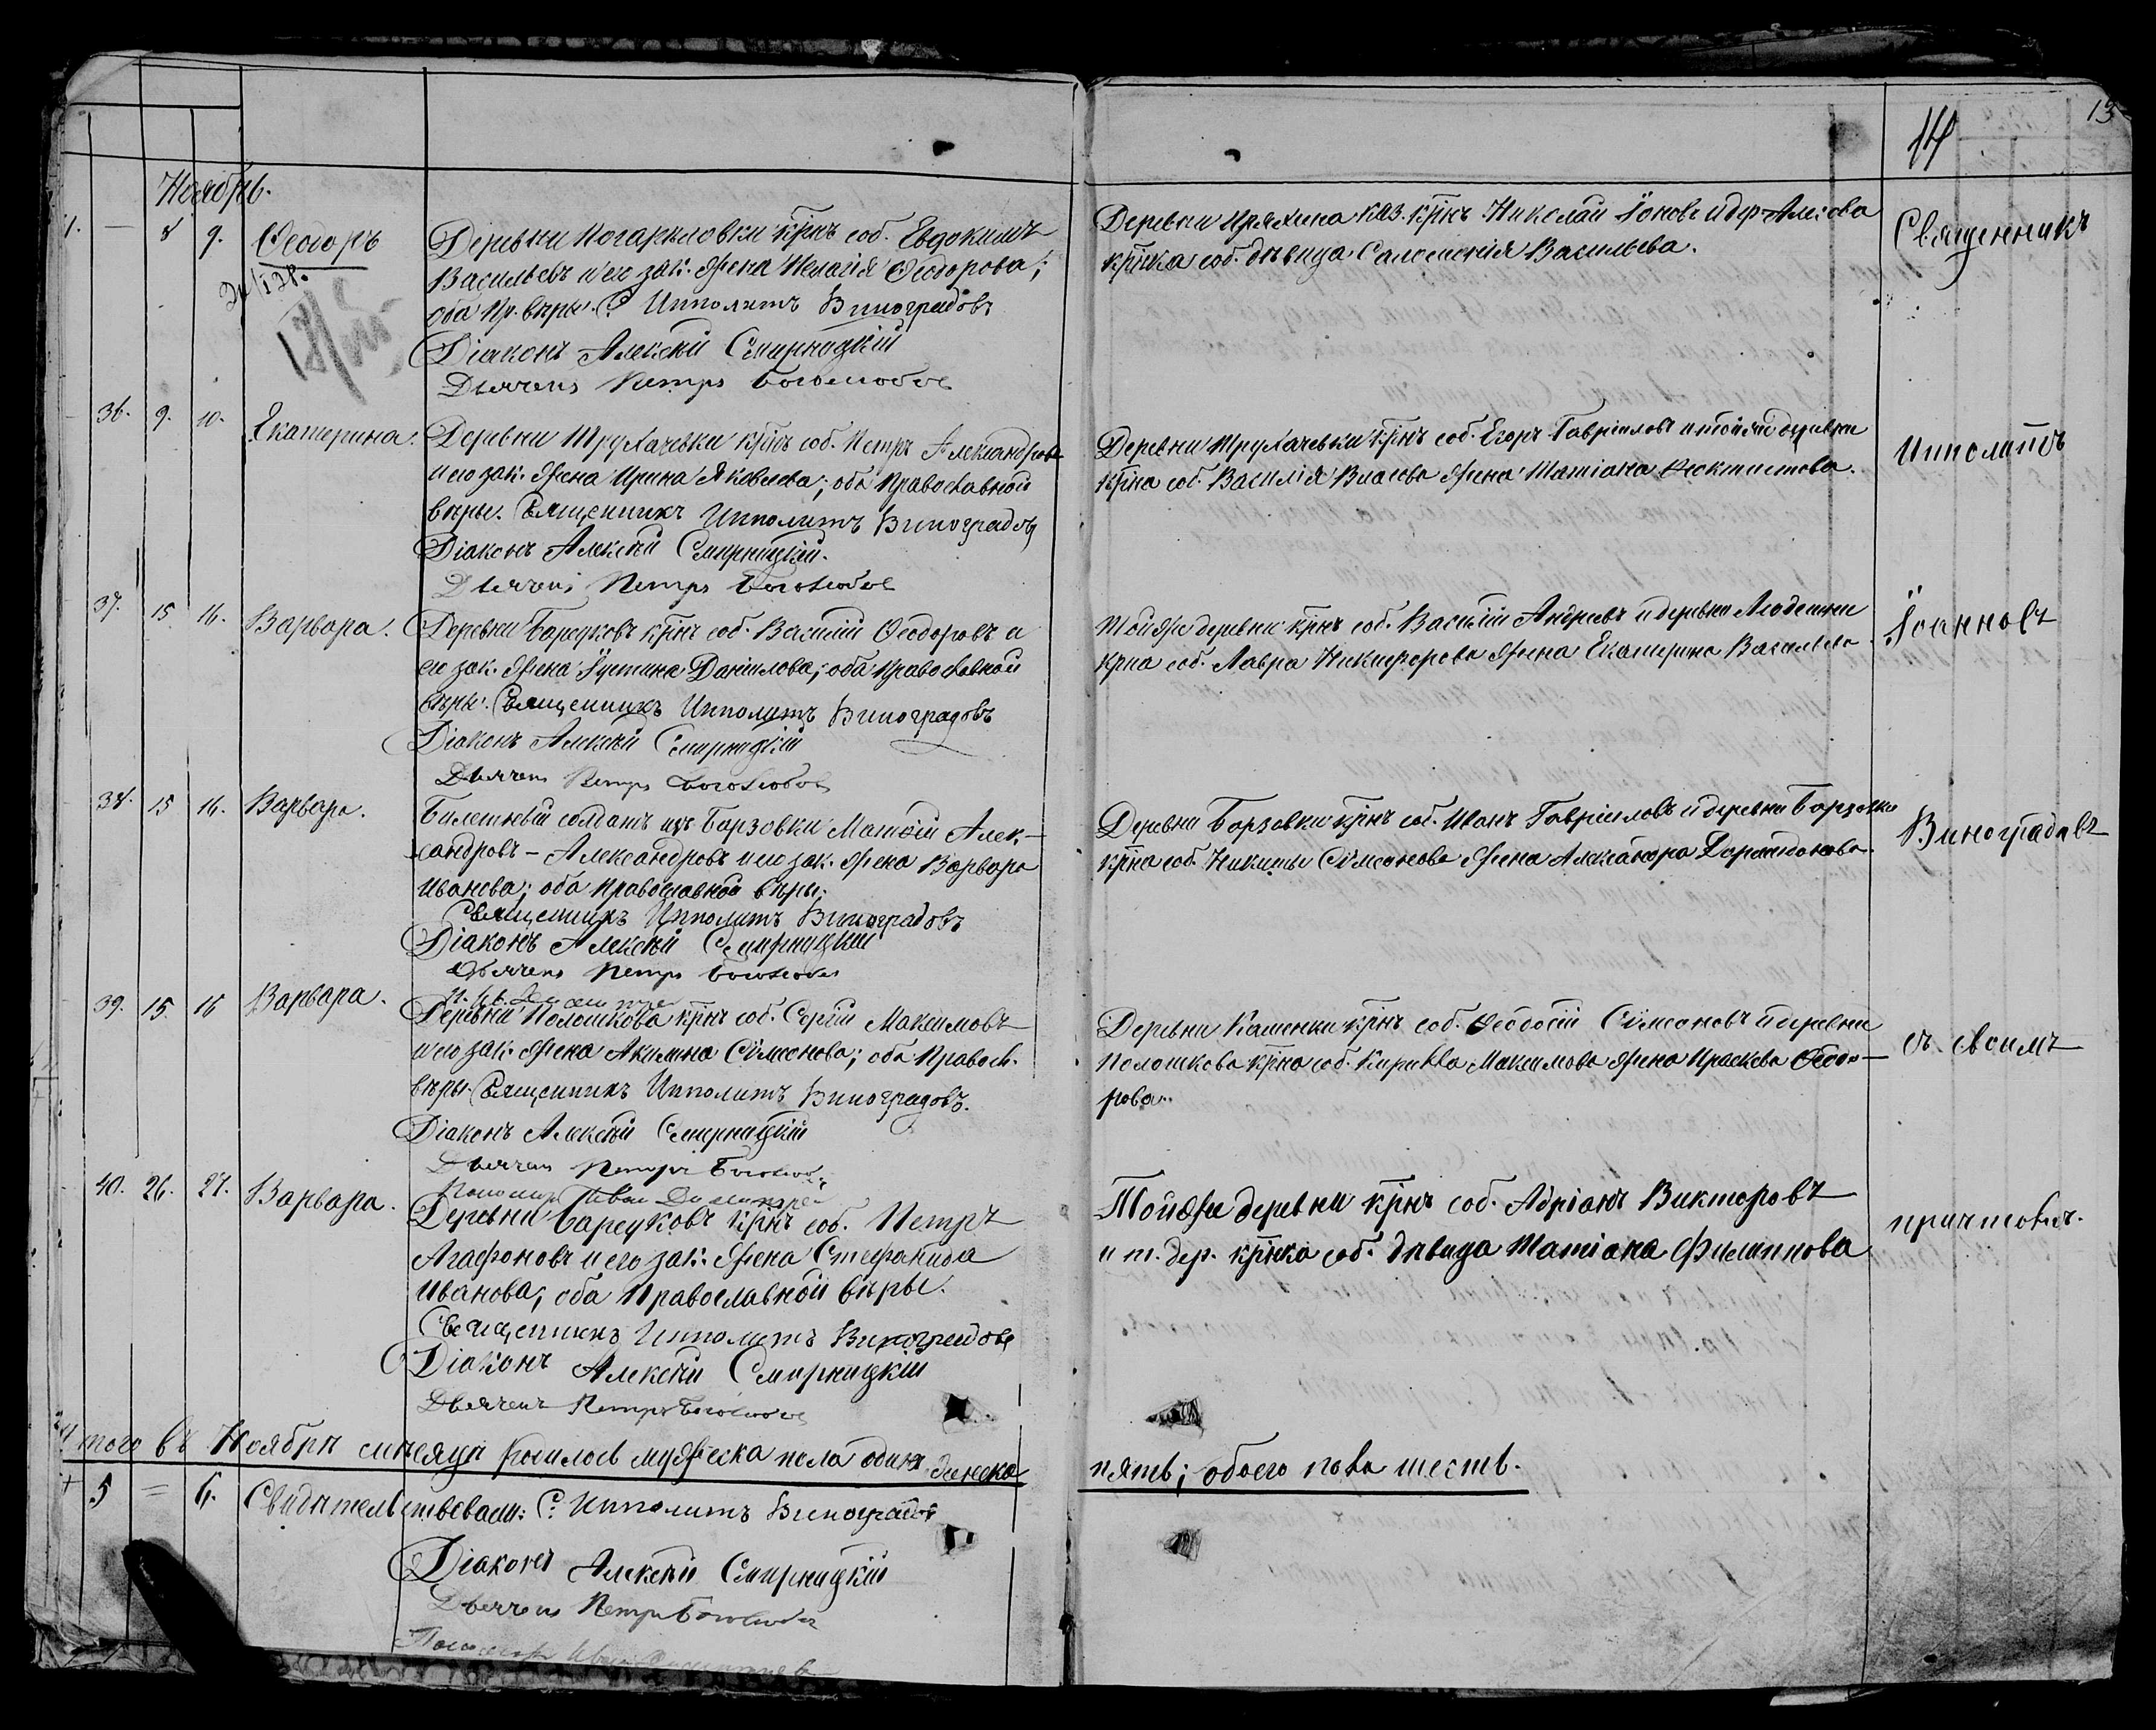 13
14
Ноябрь.
1. — 8 9. Ѳеодоръ
Деревни Погарыловки крнъ соб. Евдокимъ
Васильевъ и его зак. жена Пелагія Ѳеодорова;
оба пр. вѣры. С. Ипполитъ Виноградовъ
Діаконъ Алексѣй Смирницкій
Дьячекъ Петръ Боголюбовъ
Деревни Пряхина каз. крнъ Николай Іоновъ и дер. Алисова
крнка соб. дѣвица Саломонія Васильева.
Священникъ
36. 9. 10. Екатерина.
Деревни Трухачевки крнъ соб. Петръ Александровъ
и его зак. жена Ирина Яковлева; оба православной
вѣры. Священникъ Ипполитъ Виноградовъ
Діаконъ Алексѣй Смирницкій.
Дьячекъ Петръ Боголюбовъ
Деревни Трухачевки крнъ соб. Егоръ Гавріиловъ и той же деревни
крна соб. Василія Власова жена Татіана Ѳеоктистова.
Ипполитъ
37. 15. 16. Варвара.
Деревни Барсуковъ крнъ соб. Василій Ѳеодоровъ и
его зак. жена Іустина Даніилова; оба православной
вѣры. Священникъ Ипполитъ Виноградовъ
Діаконъ Алексѣй Смирницкій
Дьячекъ Петръ Боголюбовъ
Той же деревни крнъ соб. Василій Андреевъ и деревни
крна соб. Лавра Никифорова жена Екатерина Васильева.
Іоанновъ
38. 15 16. Варвара.
Билетный солдатъ изъ Борзовки Матѳій Алек-
сандровъ - Александровъ и его зак. жена Варвара
Иванова; оба православной вѣры.
Священникъ Ипполитъ Виноградовъ
Діаконъ Алексѣй Смирницкій
Дьячекъ Петръ Боголюбовъ
Деревни Борзовки крнъ соб. Иванъ Гавріиловъ и деревни Борзовки
крна соб. Никиты Сѵмеонова жена Александра
Виноградовъ
39. 15. 16 Варвара.
Деревни Полошкова крнъ соб. Сергій Максимовъ
и его зак. жена Акилина Сѵмеонова; оба правосл.
вѣры. Священникъ Ипполитъ Виноградовъ.
Діаконъ Алексѣй Смирницкій
Дьячекъ Петръ Боголюбовъ
Пономарь Иван
Деревни Каменки крнъ соб. Ѳеодосій Сѵмеоновъ и деревни
Полошкова крна соб. Кирилла Максимова жена Праскева Ѳеодо-
рова.
съ своимъ
40. 26. 27. Варвара.
Деревни Барсуковъ крнъ соб. Петръ
Агафоновъ и его зак. жена Стефанида
Иванова; оба православной вѣры.
Священникъ Ипполитъ Виноградовъ
Діаконъ Алексѣй Смирницкій
Дьячекъ Петръ Боголюбовъ
Той же деревни крнъ соб. Адріанъ Викторовъ
и т. дер. крнка соб. дѣвица Татіана Филиппова
причтомъ.
Итого въ Ноябрѣ мѣсяцѣ родилось мужеска пола одинъ женска
пять; обоего пола шесть.
5 = 6. Свидѣтельствовали: С. Ипполитъ Виноградовъ
Діаконъ Алексѣй Смирницкій
Дьячекъ Петръ Боголюбовъ
Пономарь Иван